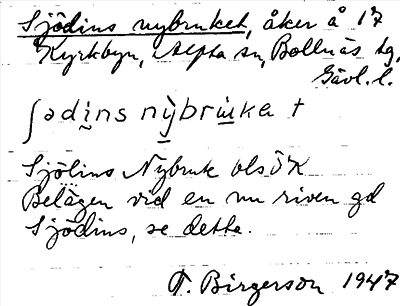 Sjödins nybruket, åker å 17
Kyrkbyn, Alfta sn, Bollnäs tg,
Gävl. l.
ʃədi̮ns nỳ̮bru̲i̲ka t
Sjölins Nybruk bls ÖK
Belägen vid en nu riven gd
Sjödins, se detta.
T. Birgerson 1947